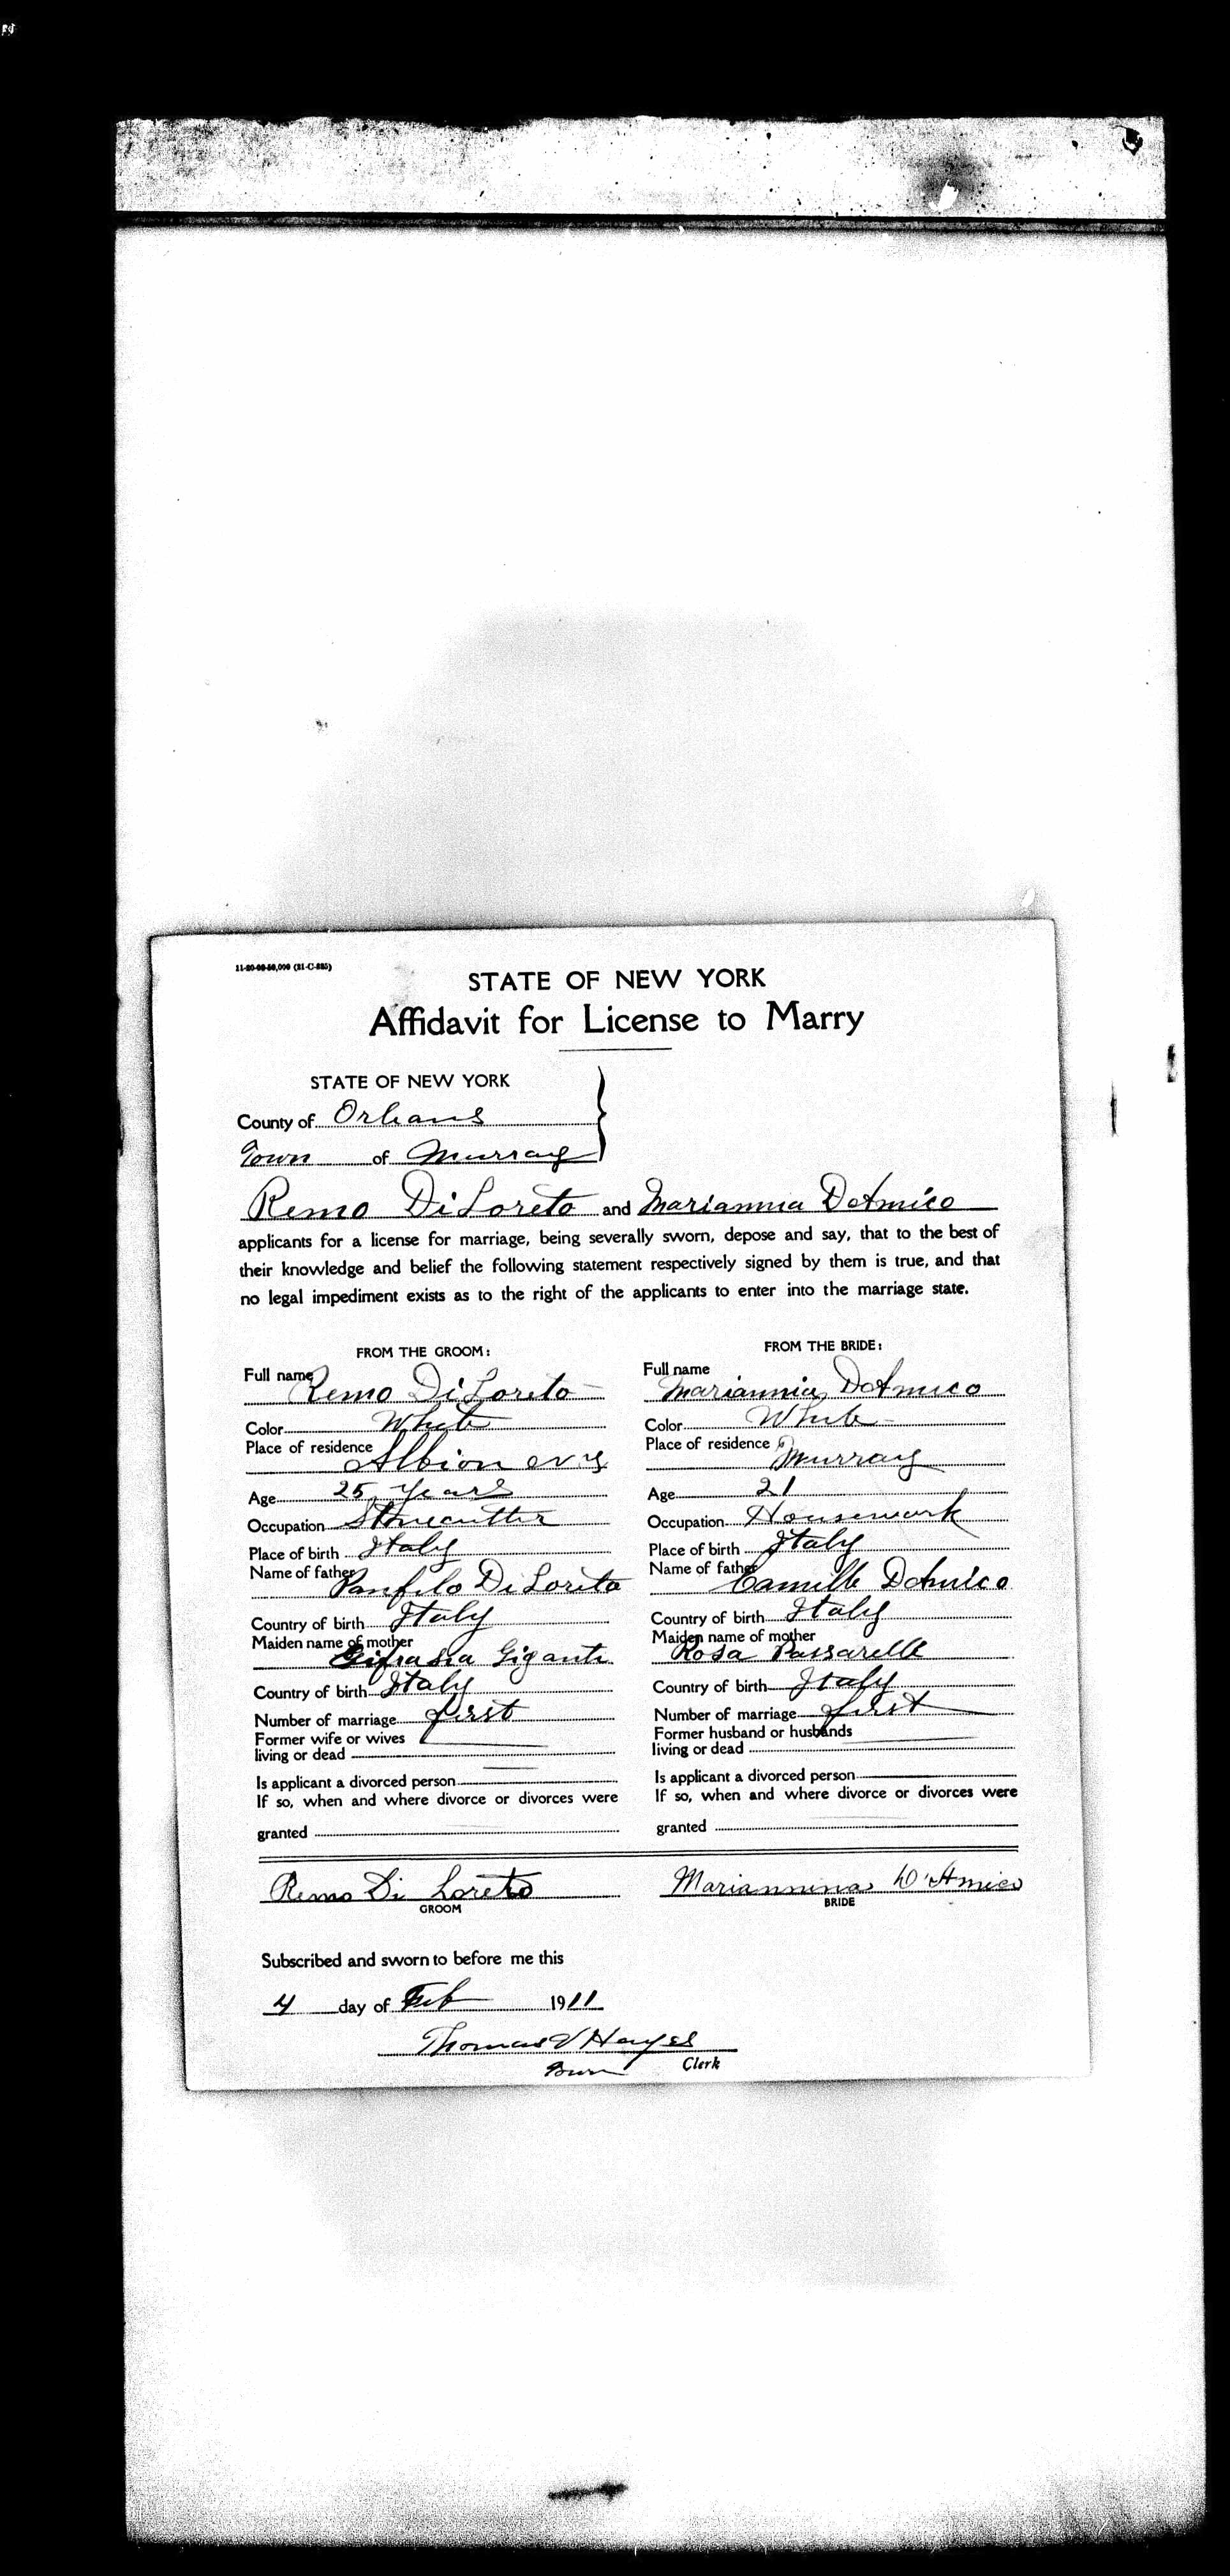 STATE OF NEW YORK
Affidavit for License to Marry
STATE OF NEW YORK
County of Orleans
Town of Murray
Remo DiLoreto and Mariannia DeAmico
applicants for a license for marriage, being severally sworn, depose and say, that to the best of
their knowledge and belief the following statement respectively signed by them is true, and that
no legal impediment exists as to the right of the applicants to enter into the marriage state.
FROM THE GROOM:
Full name Remo DiLoreto
Color White
Place of residence Albion N Y
Age 25 years
Occupation Stonecutter
Place of birth Italy
Name of father Panfilo DiLoreto
Country of birth Italy
Maiden name of mother Giganti
Country of birth Italy
Number of marriage first
Former wife or wives
living or dead
Is applicant a divorced person
If so, when and where divorce or divorces were
granted
FROM THE BRIDE:
Full name Mariannia DeAmico
Color White
Place of residence Murray
Age 21
Occupation Housework
Place of birth Italy
Name of father Camille DeAmico
Country of birth Italy
Maiden name of mother Rosa Passarelle
Country of birth Italy
Number of marriage first
Former husband or husbands
living or dead
Is applicant a divorced person
If so, when and where divorce or divorces were
granted
Remo Di Loreto
GROOM
Mariannina D'Amico
BRIDE
Subscribed and sworn to before me this
4 day of Feb 1911
Thomas V Hayes
Town Clerk